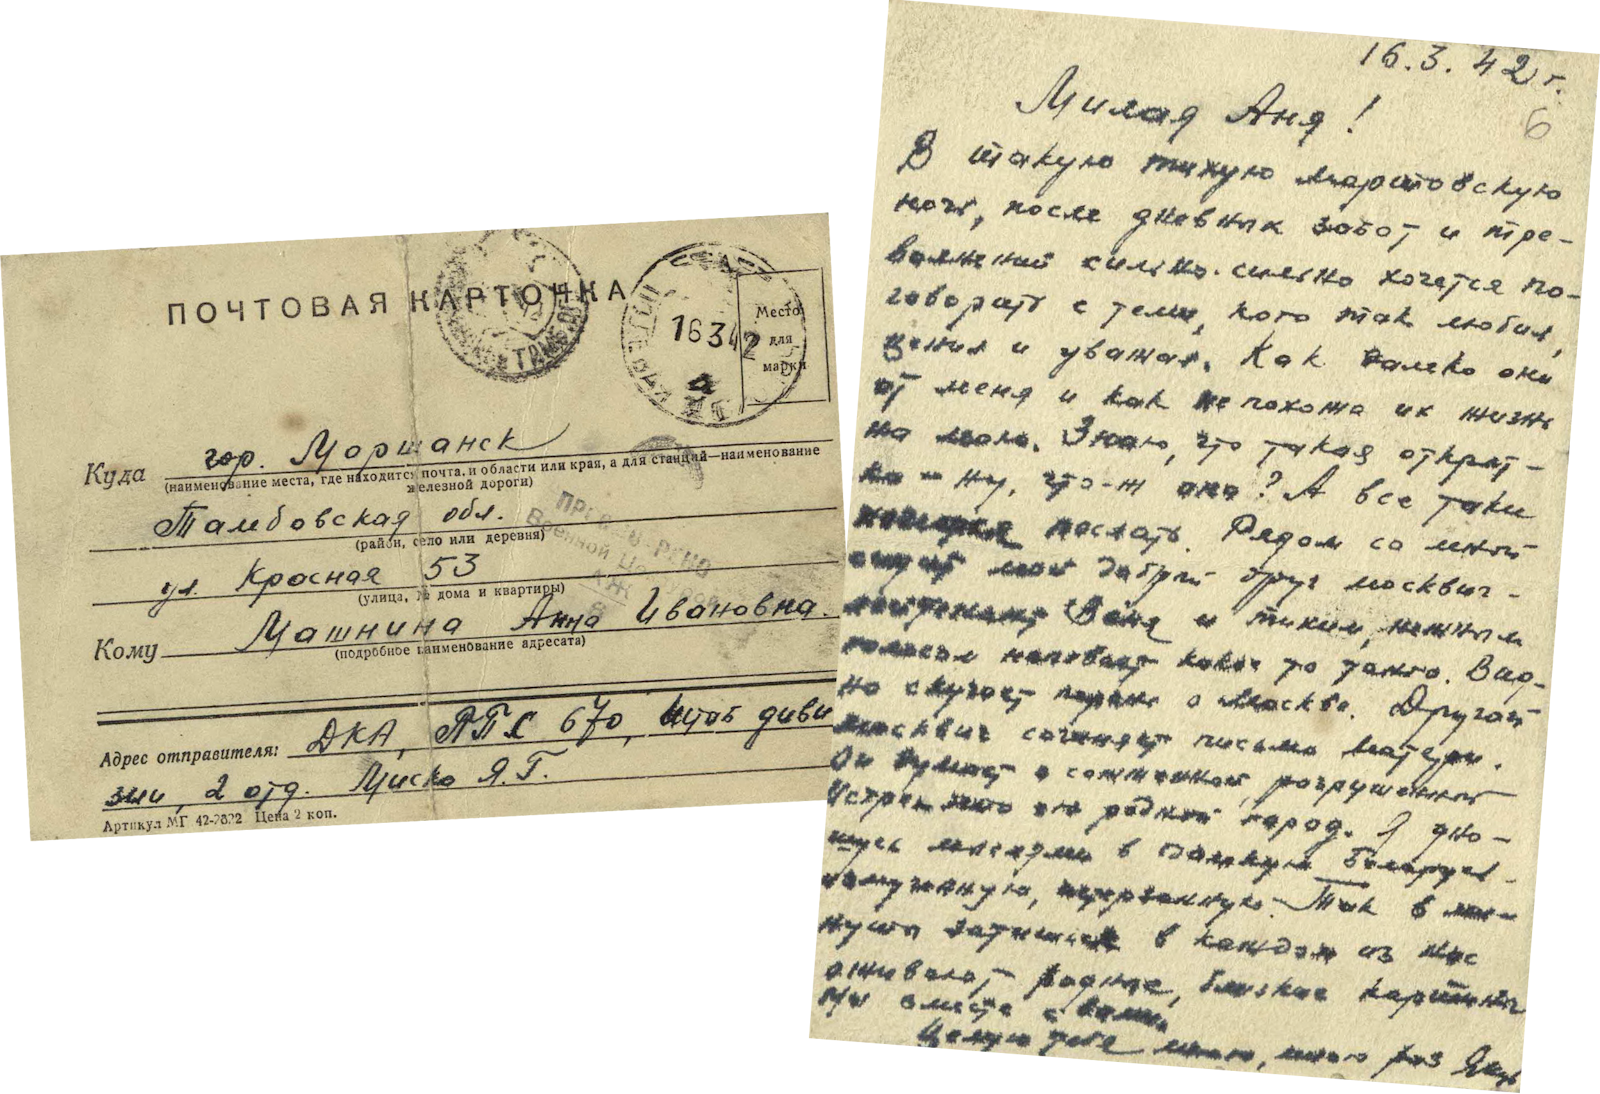 ПОЧТОВАЯ КАРТОЧКА
16 3 42
Место
для
марки
Куда гор. Моршанск
(наименование места, где находится почта, и области или края, а для станций—наименование
железной дороги)
Тамбовская обл.
(район, село или деревня)
ул. Красная 53
(улица, № дома и квартиры)
Кому Машнина Анна Ивановна.
(подробное наименование адресата)
ПРОСМОТРЕНО
Военной Цензурой
Адрес отправителя: ДКА, ППС 670, штаб диви
зии, 2 отд. Миско Я.Г.
Артикул МГ 42-2622 Цена 2 коп.
16.3.42 г.
6
Милая Аня!
В такую тихую мартовскую
ночь, после дневных забот и тре-
волнений сильно-сильно хочется по-
говорить с теми, кого так любил,
ценил и уважал. Как далеко они
от меня и как не похожа их жизнь
на мою. Знаю, что такая открыт-
ка – ну, что-ж она? А все таки
послать. Рядом со мной
мой добрый друг москвич-
лейтенант Ваня и тихим, нежным
голосом напевает какое то танго. Вид-
но скучает парень о Москве. Другой
москвич сочиняет письмо матери.
Он думает о сожженной, разрушенной
его родной город. Я уно-
шусь мыслями в далекую Беларусь-
измученную, истерзанную. Так в ми-
нуты затишья в каждом из нас
оживают родные, близкие картины
Мы вместе с вами.
Целую тебя много, много раз Яша